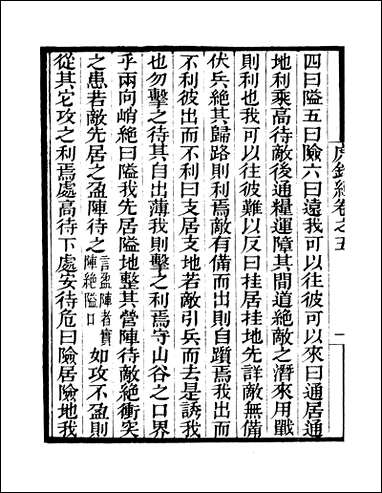 虎鈐經卷之五
一
四曰隘五曰險六曰遠我可以往彼可以來曰通居通
地利乘高待敵後通糧運障其間道絶敵之潛來用戰
則利也我可以往彼難以反曰挂居挂地先詳敵無備
伏兵絶其歸路則利焉敵有備而出則自躓焉我出而
不利彼出而不利曰支居支地若敵引兵而去是誘我
也勿擊之待其自出薄我則擊之利焉守山谷之口界
乎兩向峭絶曰隘我先居隘地整其營陣待敵絶衝突
之患若敵先居之盈陣待之言盈陣者實陣絶隘口如攻不盈則
從其它攻之利焉處高待下處安待危曰險居險地我